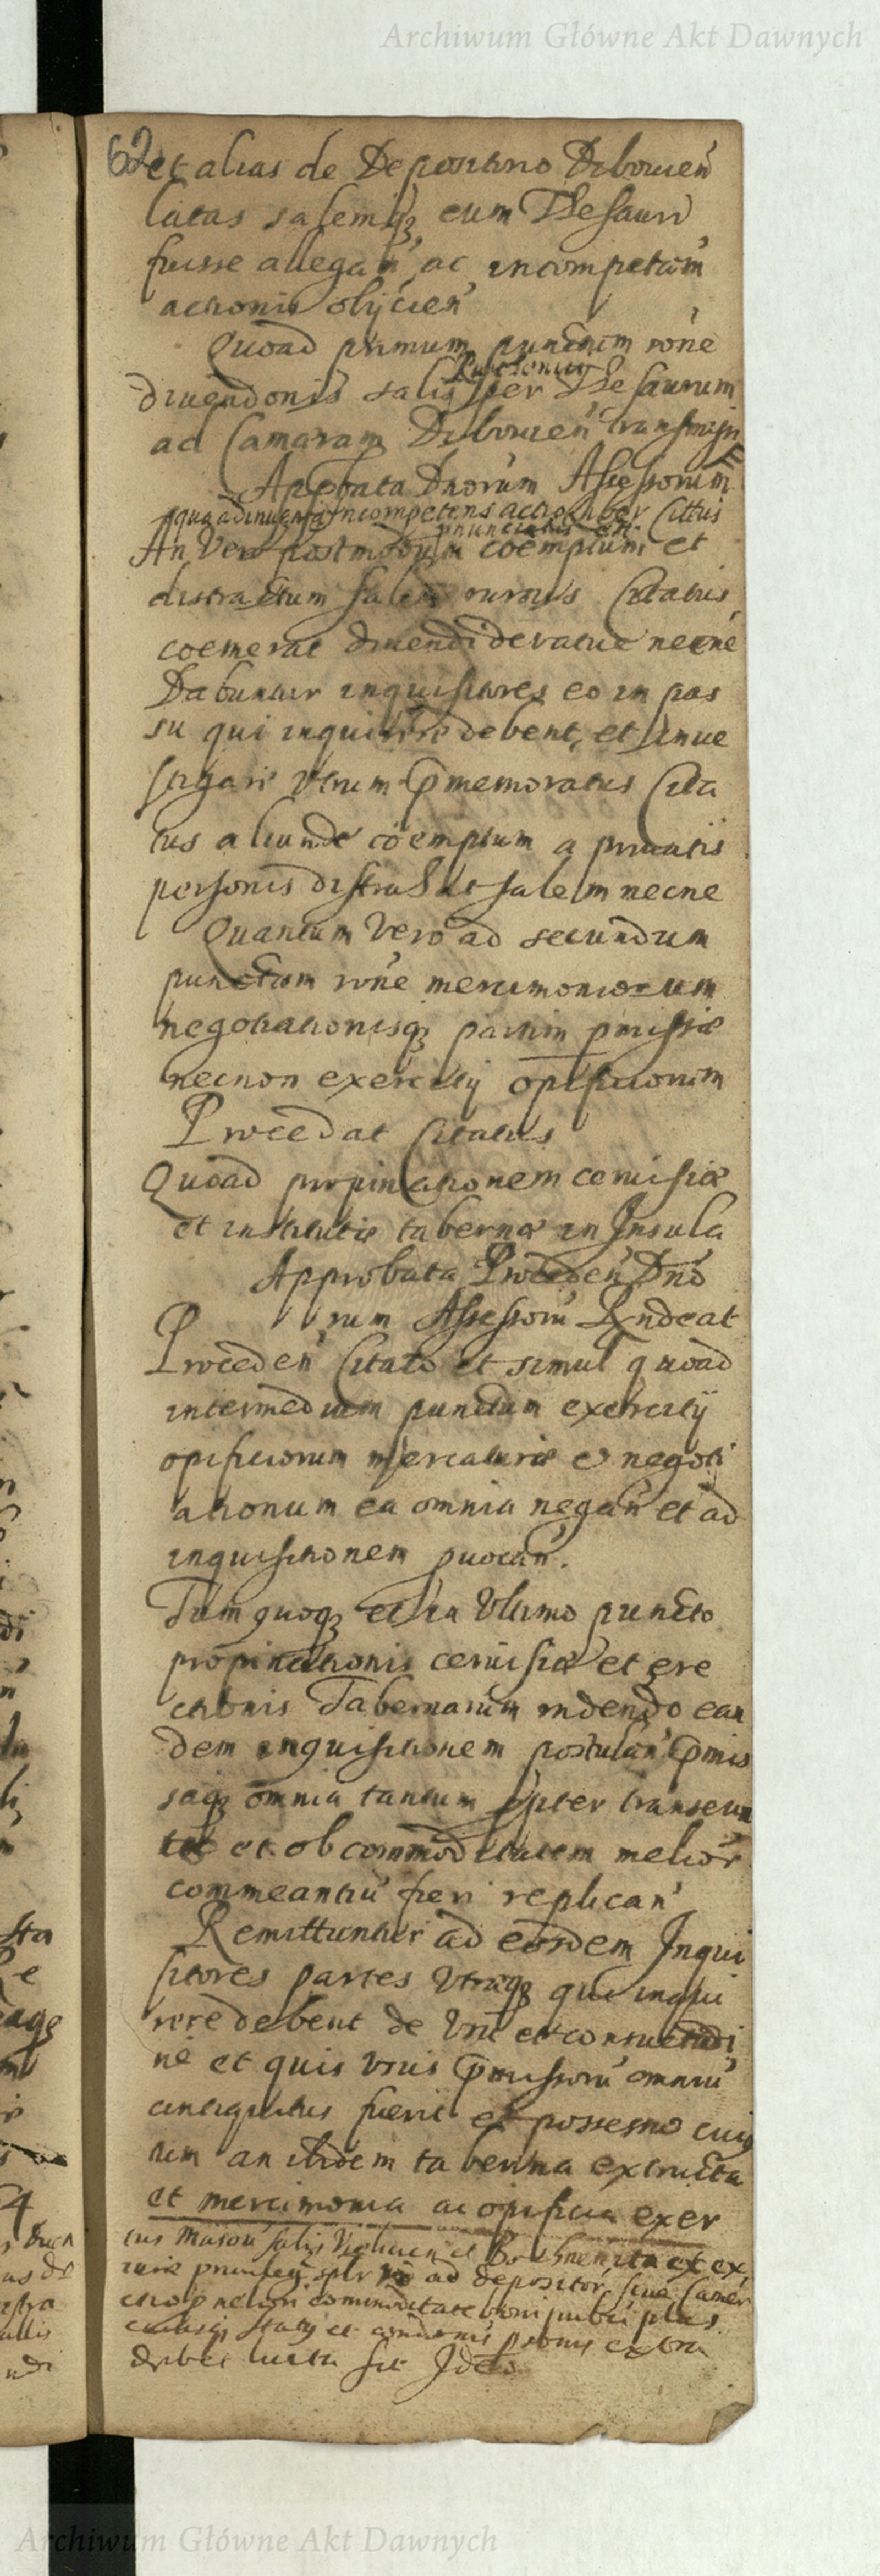 Archiwum Główne Akt Dawnych
62
et alias de Depositorio Dibovien̄
latas salemq3 cum Thesauri
fuisse allegan̄ ac incompetam̄
actionis obijcien̄
Quoad primum punctum rōne
divenditionis salis per Thesaurum
ad Camaram Dibovien̄ transmissi
Appbata Dnorūm Assessorum
incompetens actio citus
pnunciata est
An vero postmodum cōemptum et
distractum salem rursus Citatus
coemerat divendideratue necne
Dabuntur inquisitores eo in pas
su qui inquirere debent, et inue
stigare vtrum pmemoratus Cita
tus aliunde cōemptum a priuatis
personis distrahat salem necne
Quantum vero ad secundum
punctum rōne mercimoniorum
negotiationisq3 passim pmissæ
necnon exercitij opificiorum
Procedat Citatus
Quoad propinationem ceruisiæ
et institutis tabernæ in Insula
Approbata Proceden̄ Dnō
rum Assessorū Rñdeat
Proceden̄ Citato et simul quoad
intermedium punctum exercitij
opificiorum mercaturæ et negoti
ationum ea omnia negan̄ et ad
inquisitionem puocan̄.
Tum quoq3 et in vltimo puncto
propinationis ceruisiæ et ere
ctionis Tabernarum rndendo ean
dem inquisitionem postulan̄ pmis
saq3 omnia tantum ppter transeun
et ob commoditatem melior̄
commeantiū fieri replican̄
Remittuntur ad eosdem Inqui
sitores partes vtræq3 qui inqui
rere debent de vsu et consuetudi
ne et quis vsus pmissorū omniū
antiquitus fuerit et possessio cuius
um an ibidem taberna extructa
et mercimonia ac opificia exer
salis Vielicien et Bochnen ex
iuris ad depositor̄ siue Camer̄
commoditate boni publici
extra
debet sit
Archiwum Główne Akt Dawnych